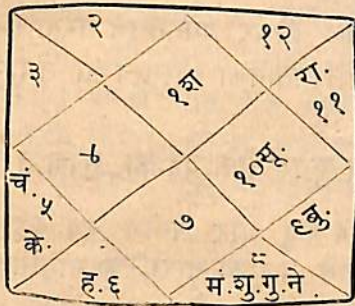 २
१२
३
१श
रा.
११
४
१०सू.
चं.
५
के.
७
९बु.
ह.६
८
मं.शु.गु.ने